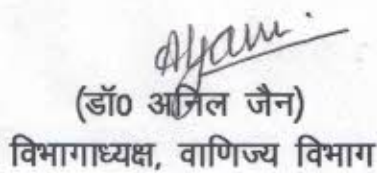 (डॉ0 अनिल जैन)
विभागाध्यक्ष, वाणिज्य विभाग